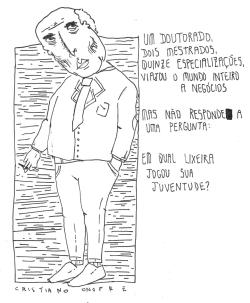 UM DOUTORADO,
DOIS MESTRADOS,
QUINZE ESPECIALIZAÇÕES,
VIAJOU O MUNDO INTEIRO
A NEGÓCIOS
MAS NÃO RESPONDE A
UMA PERGUNTA:
EM QUAL LIXEIRA
JOGOU SUA
JUVENTUDE?
CRISTIANO ONOFRE